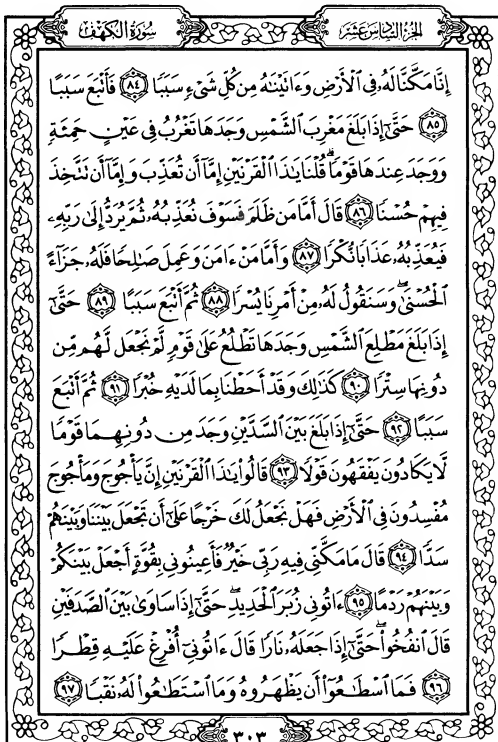 الجُزْءُ السَّادِسَ عَشَرَ سُورَةُ الكَهْفِ
إِنَّا مَكَّنَّا لَهُۥ فِى ٱلْأَرْضِ وَءَاتَيْنَٰهُ مِن كُلِّ شَىْءٍ سَبَبًا ٨٤ فَأَتْبَعَ سَبَبًا
٨٥ حَتَّىٰٓ إِذَا بَلَغَ مَغْرِبَ ٱلشَّمْسِ وَجَدَهَا تَغْرُبُ فِى عَيْنٍ حَمِئَةٍ
وَوَجَدَ عِندَهَا قَوْمًاۗ قُلْنَا يَٰذَا ٱلْقَرْنَيْنِ إِمَّآ أَن تُعَذِّبَ وَإِمَّآ أَن تَتَّخِذَ
فِيهِمْ حُسْنًا ٨٦ قَالَ أَمَّا مَن ظَلَمَ فَسَوْفَ نُعَذِّبُهُۥ ثُمَّ يُرَدُّ إِلَىٰ رَبِّهِۦ
فَيُعَذِّبُهُۥ عَذَابًا نُّكْرًا ٨٧ وَأَمَّا مَنْ ءَامَنَ وَعَمِلَ صَٰلِحًا فَلَهُۥ جَزَآءً
ٱلْحُسْنَىٰۖ وَسَنَقُولُ لَهُۥ مِنْ أَمْرِنَا يُسْرًا ٨٨ ثُمَّ أَتْبَعَ سَبَبًا ٨٩ حَتَّىٰٓ
إِذَا بَلَغَ مَطْلِعَ ٱلشَّمْسِ وَجَدَهَا تَطْلُعُ عَلَىٰ قَوْمٍ لَّمْ نَجْعَل لَّهُم مِّن
دُونِهَا سِتْرًا ٩٠ كَذَٰلِكَ وَقَدْ أَحَطْنَا بِمَا لَدَيْهِ خُبْرًا ٩١ ثُمَّ أَتْبَعَ
سَبَبًا ٩٢ حَتَّىٰٓ إِذَا بَلَغَ بَيْنَ ٱلسَّدَّيْنِ وَجَدَ مِن دُونِهِمَا قَوْمًا
لَّا يَكَادُونَ يَفْقَهُونَ قَوْلًا ٩٣ قَالُوا۟ يَٰذَا ٱلْقَرْنَيْنِ إِنَّ يَأْجُوجَ وَمَأْجُوجَ
مُفْسِدُونَ فِى ٱلْأَرْضِ فَهَلْ نَجْعَلُ لَكَ خَرْجًا عَلَىٰٓ أَن تَجْعَلَ بَيْنَنَا وَبَيْنَهُمْ
سَدًّا ٩٤ قَالَ مَا مَكَّنِّى فِيهِ رَبِّى خَيْرٌ فَأَعِينُونِى بِقُوَّةٍ أَجْعَلْ بَيْنَكُمْ
وَبَيْنَهُمْ رَدْمًا ٩٥ ءَاتُونِى زُبَرَ ٱلْحَدِيدِۖ حَتَّىٰٓ إِذَا سَاوَىٰ بَيْنَ ٱلصَّدَفَيْنِ
قَالَ ٱنفُخُوا۟ۖ حَتَّىٰٓ إِذَا جَعَلَهُۥ نَارًا قَالَ ءَاتُونِىٓ أُفْرِغْ عَلَيْهِ قِطْرًا
٩٦ فَمَا ٱسْطَٰعُوٓا۟ أَن يَظْهَرُوهُ وَمَا ٱسْتَطَٰعُوا۟ لَهُۥ نَقْبًا ٩٧
٣٠٣